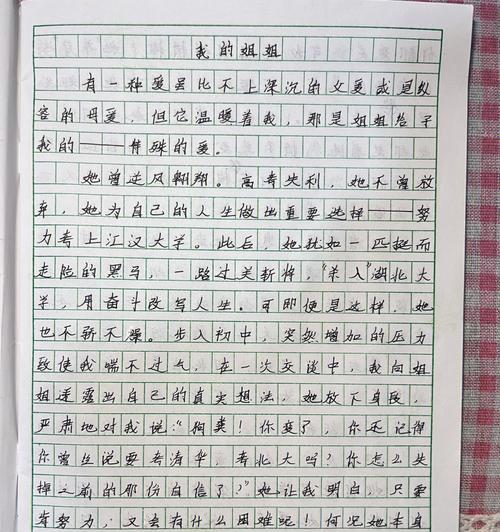 我的姐姐
有一种爱虽比不上深沉的父爱或是纵
容的母爱，但它温暖着我，那是姐姐给予
我的——特殊的爱。
她曾逆风翱翔。高考失利，她不曾放
弃，她为自己的人生做出重要选择——努
力考上江汉大学。此后，她犹如一匹挺而
走险的黑马，一路过关斩将，“杀入”湖北大
学，用奋斗改写人生。可即便是这样，她
也不骄不躁。步入初中，突然增加的压力
致使我喘不过气，在一次交谈中，我向姐
姐透露出自己的真实想法，她放下身段，
严肃地对我说：“狗类！你变了，你还记得
你曾经说要考清华，考北大吗？你怎么失
掉之前的那份自信了？”她让我明白，只要
有努力，又会有什么困难呢！何况她本身